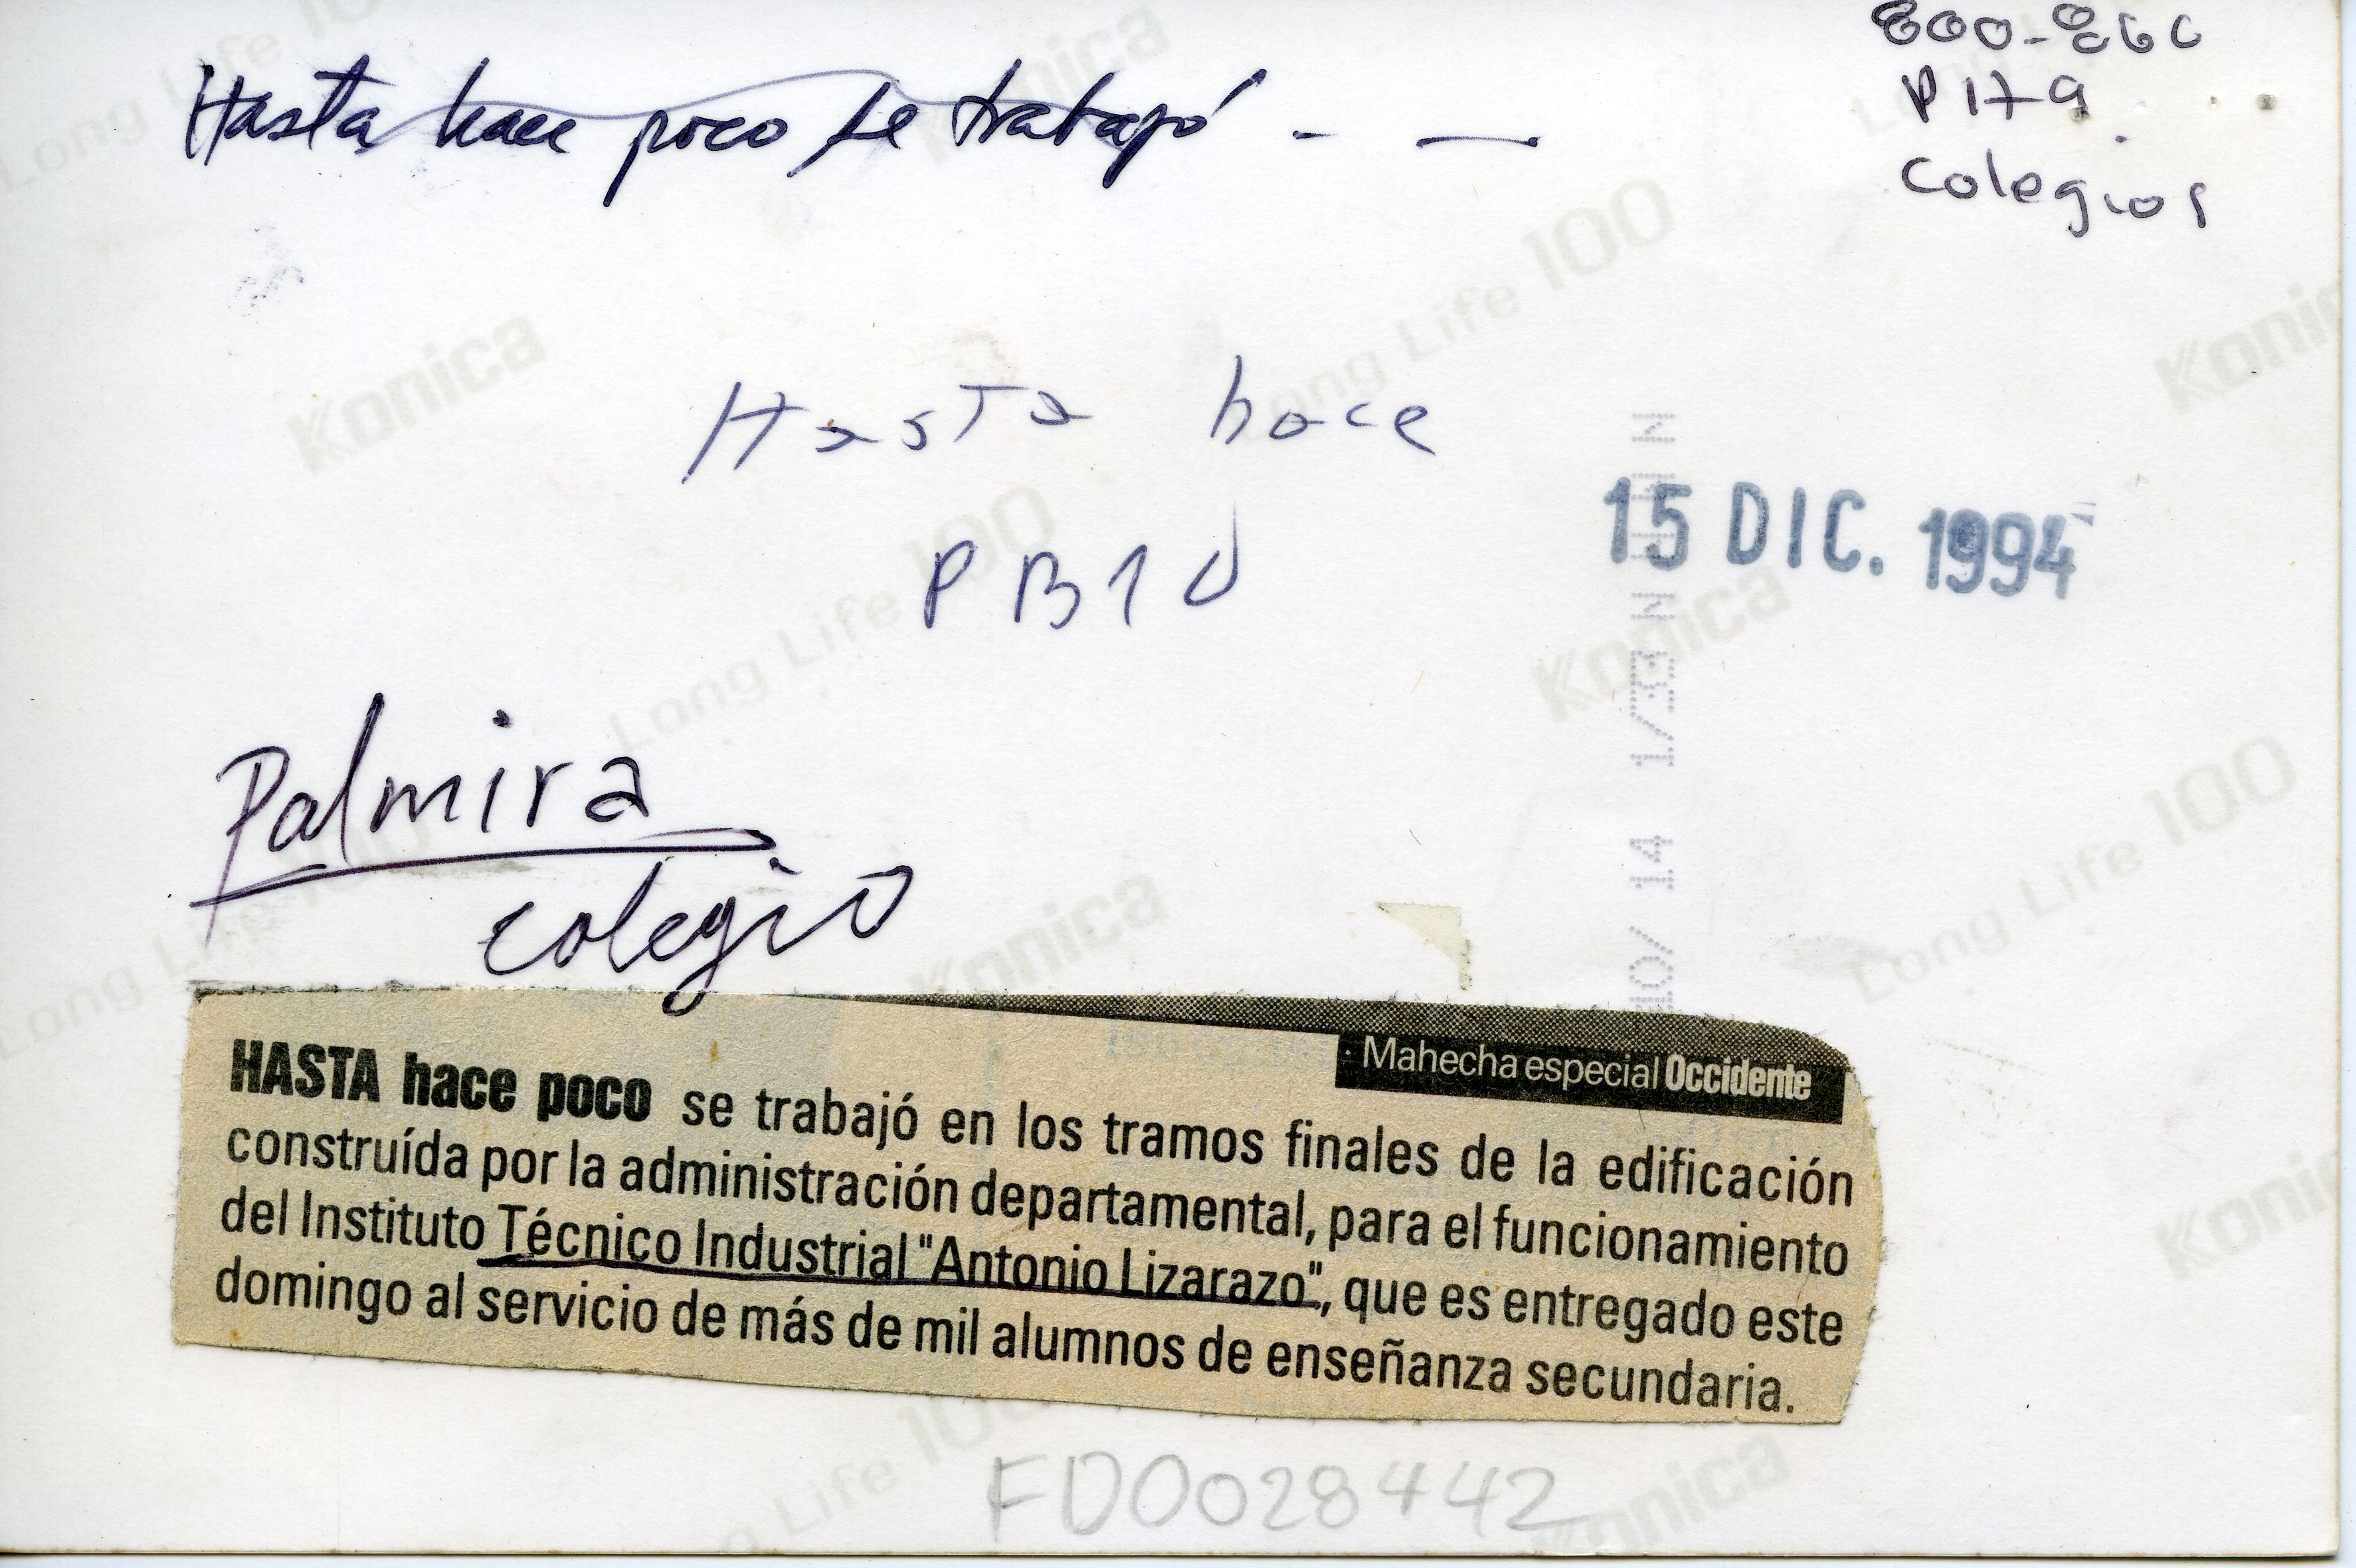 P179
Colegios
Hasta hace poco se trabajó - —
Hasta hace
15 DIC. 1994
Palmira
colegio
Mahecha especial Occidente
HASTA hace poco se trabajó en los tramos finales de la edificación
construída por la administración departamental, para el funcionamiento
del Instituto Técnico Industrial "Antonio Lizarazo", que es entregado este
domingo al servicio de más de mil alumnos de enseñanza secundaria.
FD0028442
Konica
Long Life 100